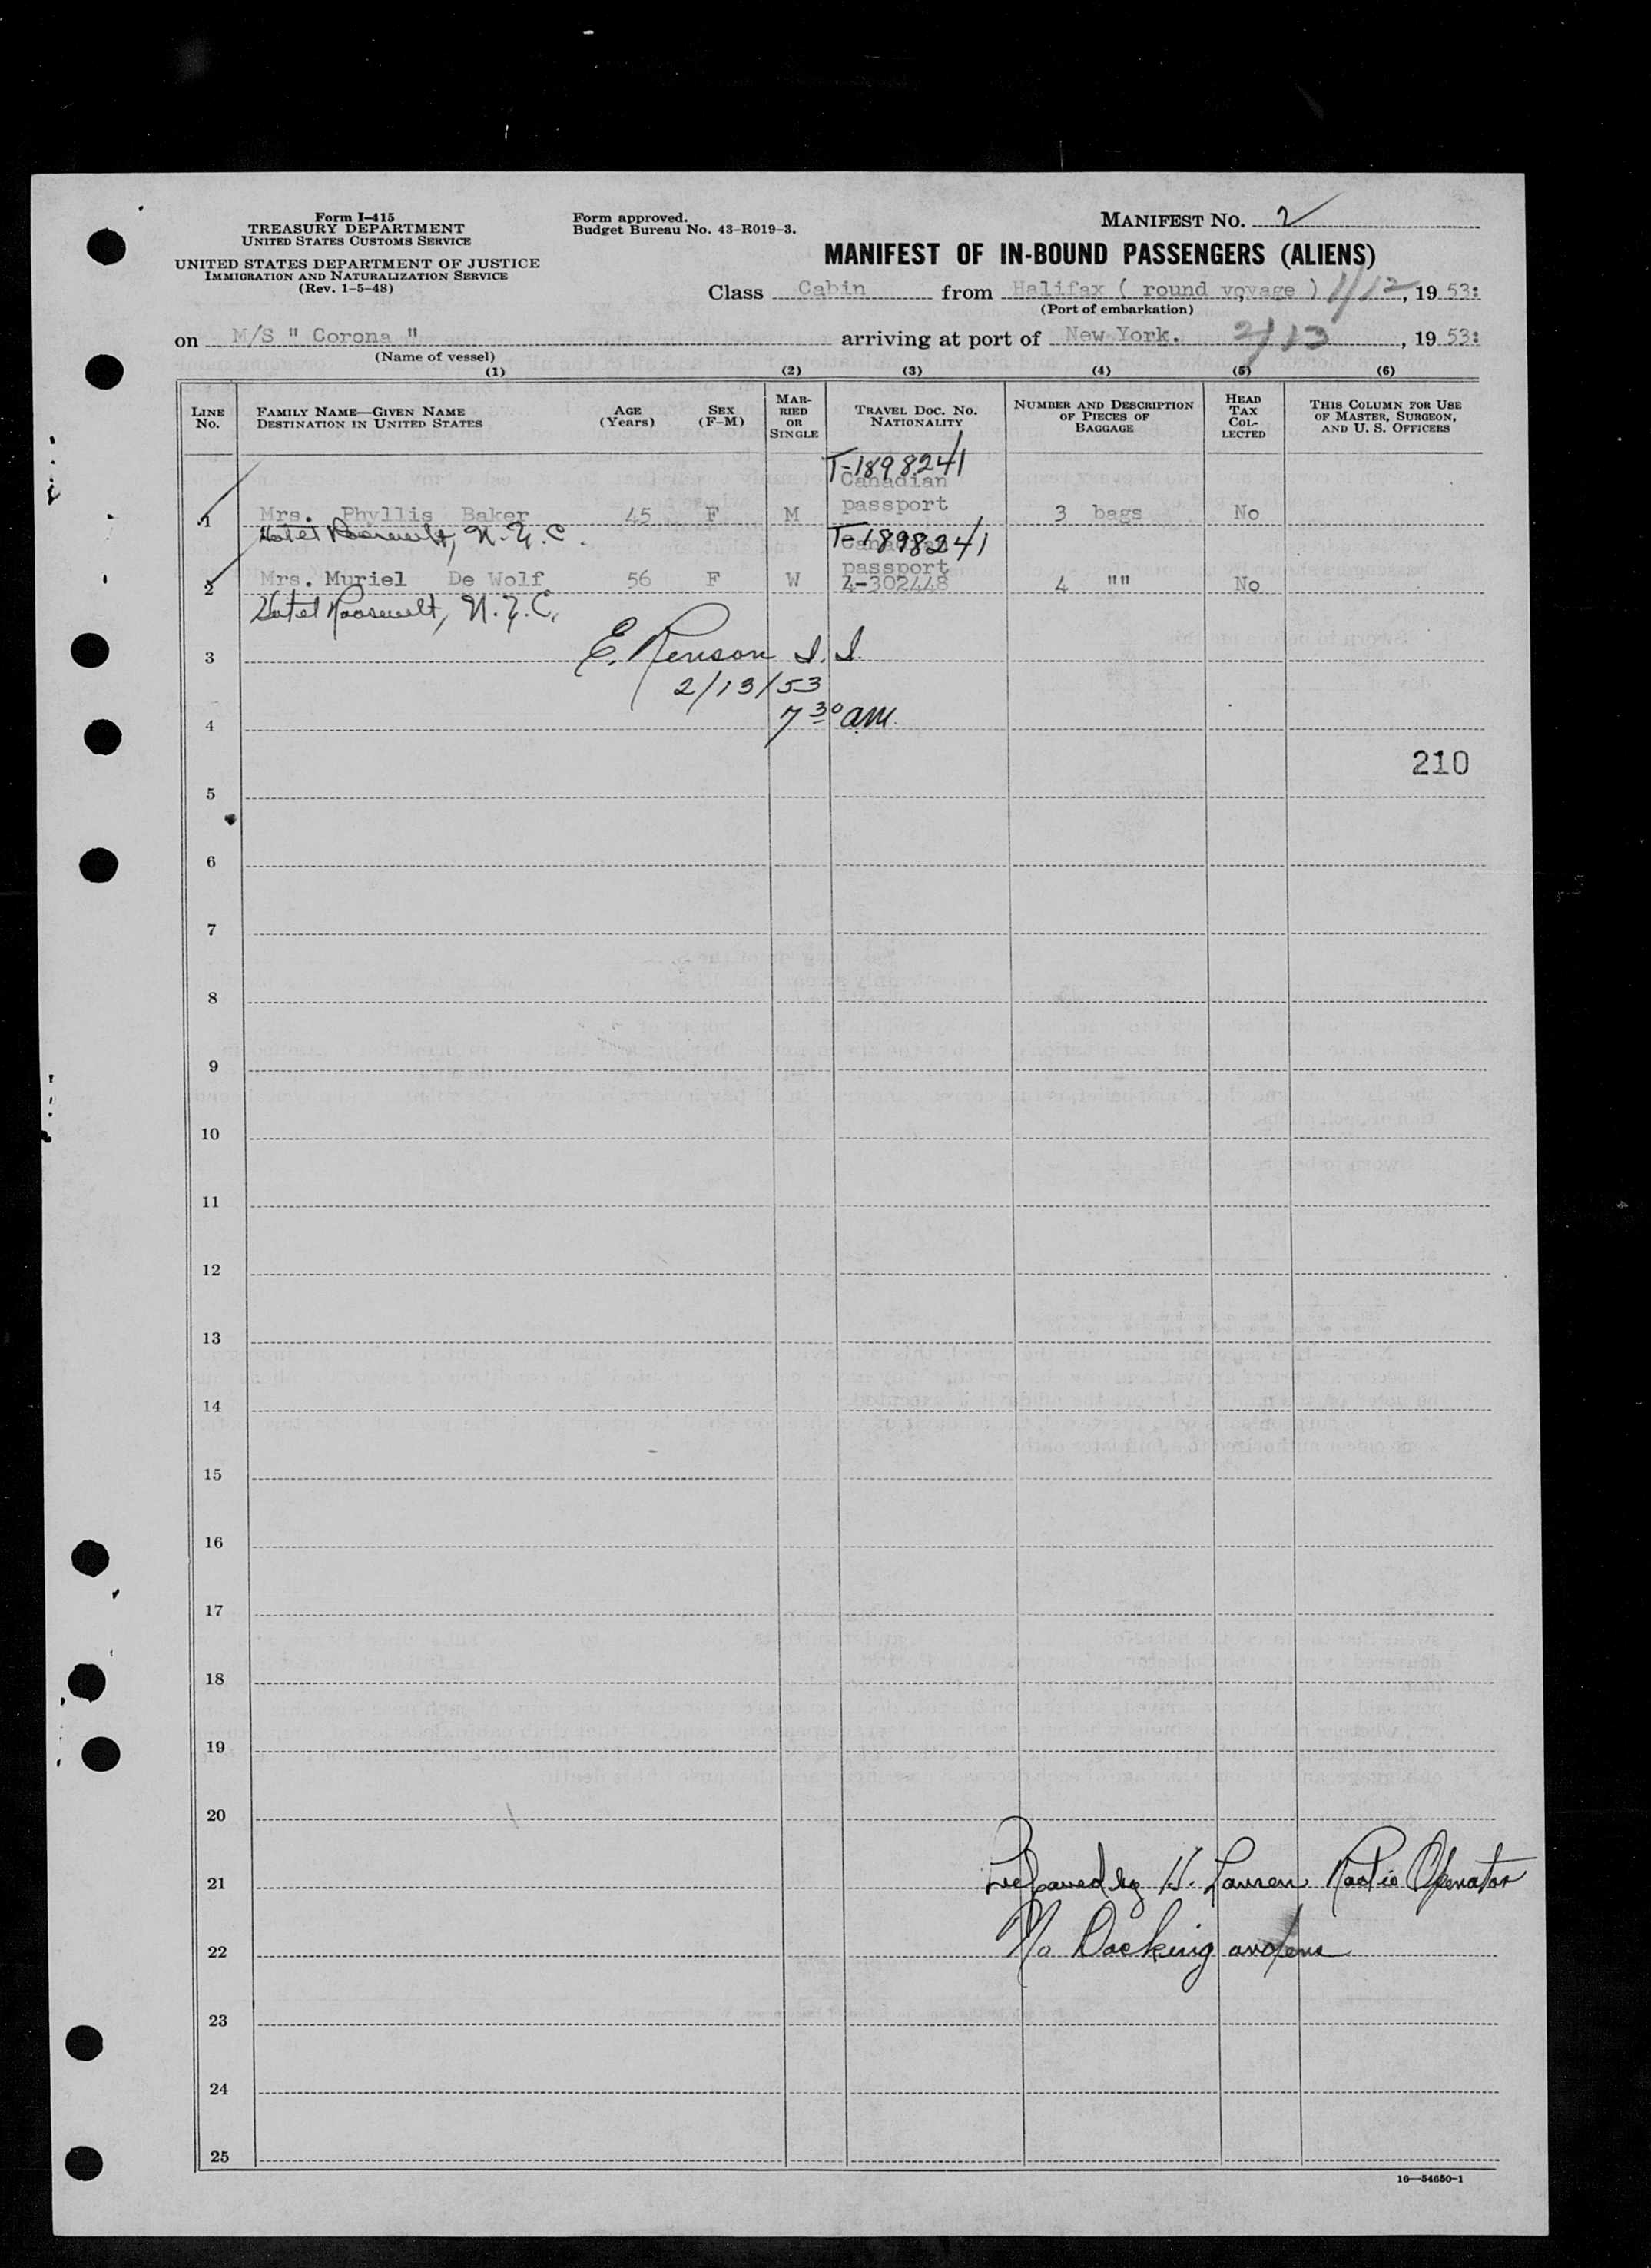 Form I-415
TREASURY DEPARTMENT
UNITED STATES CUSTOMS SERVICE
UNITED STATES DEPARTMENT OF JUSTICE
IMMIGRATION AND NATURALIZATION SERVICE
(Rev. 1-5-48)
Form approved.
Budget Bureau No. 43-R019-3.
MANIFEST NO. 2
MANIFEST OF IN-BOUND PASSENGERS (ALIENS)
Class Cabin from Halifax ( round voyage ) 1/12, 19 53:
(Port of embarkation)
on M/S " Corona " arriving at port of New York. 2/13, 19 53:
(Name of vessel)
(1) (2) (3) (4) (5) (6)
LINE No. FAMILY NAME—GIVEN NAME DESTINATION IN UNITED STATES AGE (Years) SEX (F-M) MARRIED OR SINGLE TRAVEL DOC. No. NATIONALITY NUMBER AND DESCRIPTION OF PIECES OF BAGGAGE HEAD TAX COLLECTED THIS COLUMN FOR USE OF MASTER, SURGEON, AND U. S. OFFICERS
T-1898241
Canadian
passport
1 Mrs. Phyllis Baker 45 F M 3 bags No
Hotel Roosevelt, N.Y.C.
T-1898241
Canadian
passport
2 Mrs. Muriel De Wolf 56 F W 4-302448 4 "" No
Hotel Roosevelt, N.Y.C.
3 E. Renson I.I.
2/13/53
4 7 30 am.
210
5
6
7
8
9
10
11
12
13
14
15
16
17
18
19
20
21 Prepared by H. Lauren Radio Operator
22 No Docking orders
23
24
25
16—54650-1